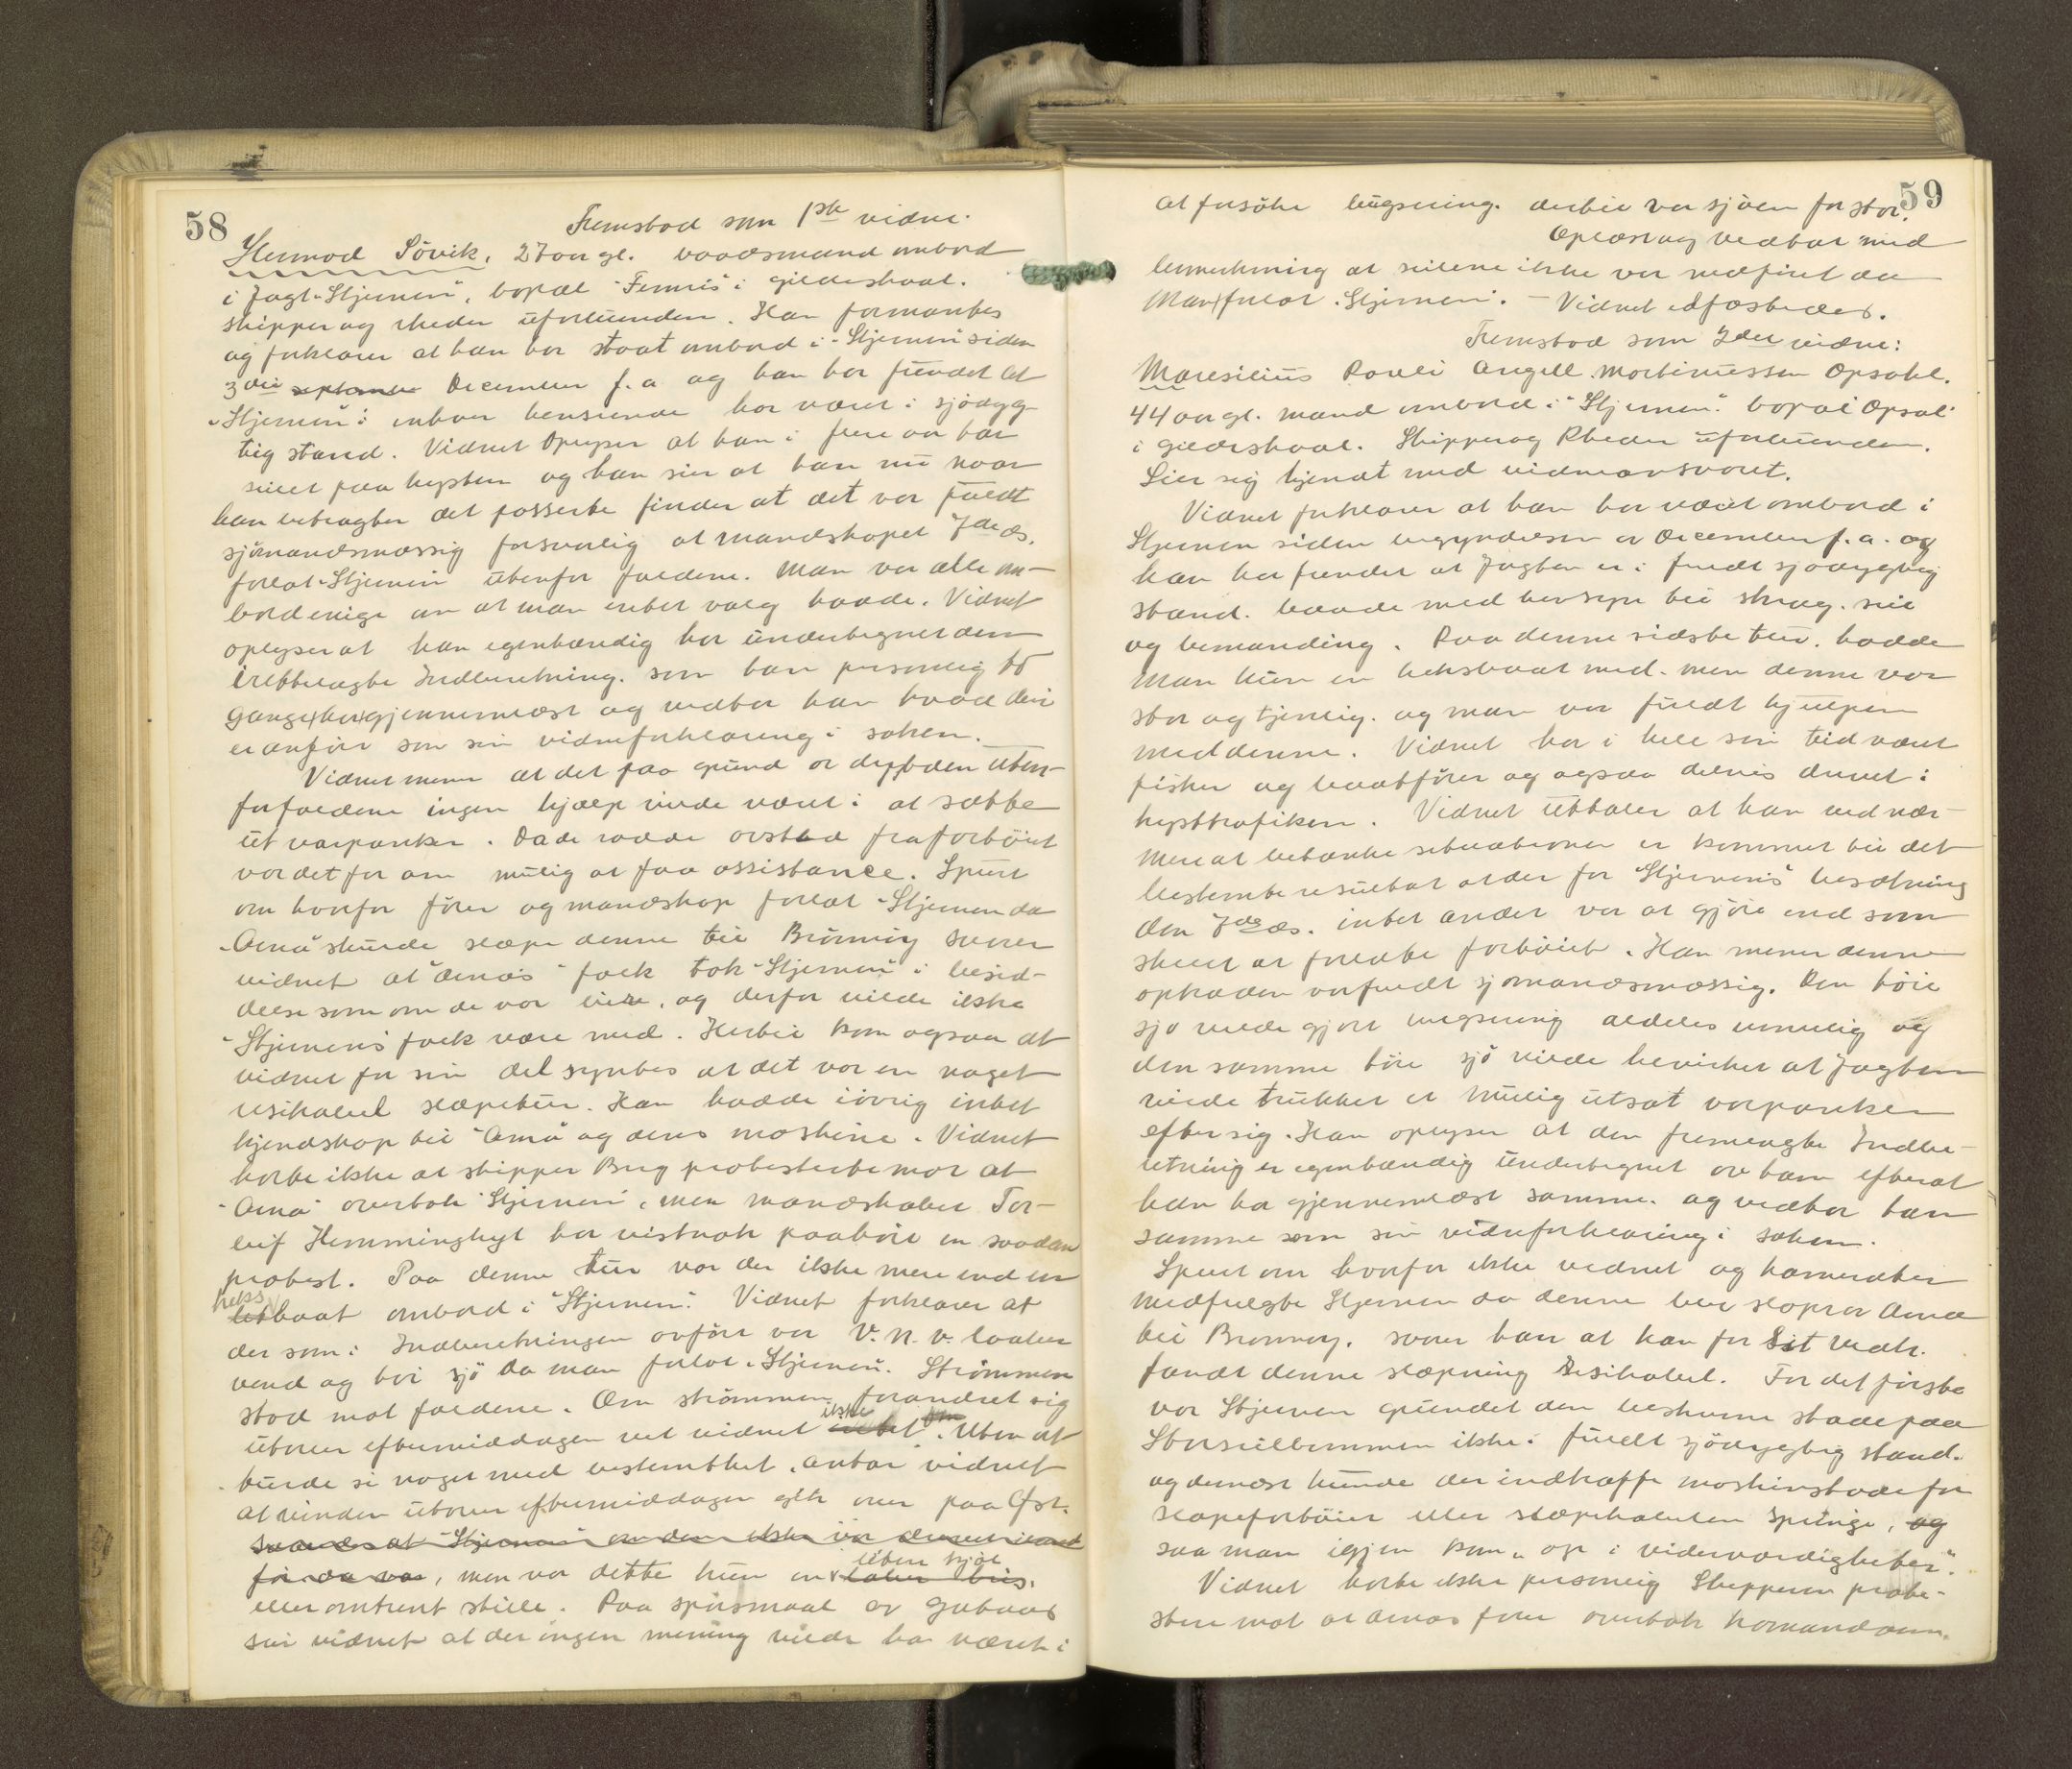 58
Fremstod som 1ste vidne.
Hermod Sövik, 27 aar gl. baadsmand ombord
i Jagt "Stjernen", bopæl "Femris" i Gildeskaal.
skipper og rheder uforbunden. Han formantes
og forklarer at han har staat ombord i "Stjernen" siden
3die septembr December f.a og han har fundet at
"Stjernen" i enhver henseende har været i sjødyg-
tig stand. Vidnet oplyser at han i flere aar har
seilet paa kysten og han sier at han nu naar
han betragter det passerte finder at det var fuldt
sjømandsmæssig forsvarlig at mandskapet 7de ds.
forlot "Stjernen" utenfor fældene. Man var alle om-
bord enige om at man intet valg hadde. Vidnet
oplyser at han egenhændig har undertegnet den
irettelagte Indberetning. som han personlig to
Gange har gjennemlæst og vedtar han hvad deri
er anført som sin vidneforklaring i saken.
Vidnet mener at det paa grund av dybden uten-
for fældene ingen hjælp vilde været i at sætte
ut varpanker. Da de radde avstod fra fartöiet
var det for om mulig at faa assistance. Spurt
om hvorfor fører og mandskap forlot "Stjernen" da
"Arna" skulde slæpe denne til Brönnöy svarer
vidnet at "Arna's" folk tok "Stjernen" i besid-
delse som om de var eiere, og derfor vilde ikke
"Stjernens" folk være med. Hertil kom ogsaa at
vidnet for sin del syntes at det var en noget
risikabel slæpetur. Han hadde iövrig intet
kjendskap til "Arna" og dens maskine. Vidnet
hørte ikke at skipper Berg protesterte mot at
"Arna" overtok "Stjernen", men mandskabet Tor-
leif Hemminghyt har vistnok paahört en saadan
protest. Paa denne tur var der ikke mere end en
heks
letbaat ombord i "Stjernen". Vidnet forklarer at
der som i Indberetningen anført var V.N.V. laber
vind og höi sjö da man forlot "Stjernen". Strömmen
stod mot fældene. Om strömmen forandret sig
ikke
utover eftermiddagen vet vidnet intet om. Uten at
turde si noget med bestemthet, antar vidnet
at vinden utover eftermiddagen gik over paa Øst.
liten kjöl
för da var, men var dette kun en laber bris.
eller omtrent stille. Paa spörsmaal av
sier vidnet at der ingen mening vilde ha været i
59
at forsöke bugsering. dertil var sjöen for stor.
Oplæst og vedtat med
bemerkning at seilene ikke var nedfiret da
Man forlot "Stjernen". – Vidnet edfæstedes.
Fremstod som 2det vidne:
Maresilius Pauli Angell Mortinussen Opsahl.
44 aar gl. mand ombord i "Stjernen". bopæl Opsal
i Gildeskaal. Skipper og Rheder uforbunden.
Sier sig kjendt med vidneansvaret.
Vidnet forklarer at han har været ombord i
Stjernen siden begyndelsen av December f.a. og
han har fundet at Jagten er i fuldt sjödygtig
stand. baade med hensyn til skrog, seil
og bemanding. Paa denne sidste tur. hadde
man kun en heksbaat med. men denne var
stor og tjenlig. og man var fuldt hjulpen
med denne. Vidnet har i hele sin tid været
fisker og baatfører og ogsaa delvis drevet i
kysttrafiken. Vidnet uttaler at han ved nær-
mere at betænke situationen er kommet til det
bestemte resultat at der for "Stjernens" besætning
den 7de ds. intet andet var at gjöre end som
skeet at forlate fartöiet. Han mener denne
optræden var fuldt sjömandsmæssig. Den höie
sjö vilde gjort bugsering aldeles umulig og
den samme höie sjö vilde bevirket at Jagten
vilde trukket et mulig utsat varpanker
efter sig. Han oplyser at den fremlagte Indbe-
retning er egenhændig undertegnet av ham efterat
han har gjennemlæst samme. og vedtar han
samme som sin vidneforklaring i saken.
Spurt om hvorfor ikke vidnet og kamerater
medfulgte Stjernen da denne blev slæpt av Arna
til Brönnöy, svarer han at han for sit vedk.
fandt denne slæpning risikabel. For det förste
var Stjernen grundet den bekomne skade paa
Storseilbommen ikke i fuldt sjödygtig stand.
og dernæst kunde der indtræffe maskinskade for
slæpefartöiet eller slæpekabelen springe, og
saa man igjen kom "op i viderværdigheter".
Vidnet hørte ikke personlig Skipperen prote-
stere mot at Arnas förer overtok kommandoen.